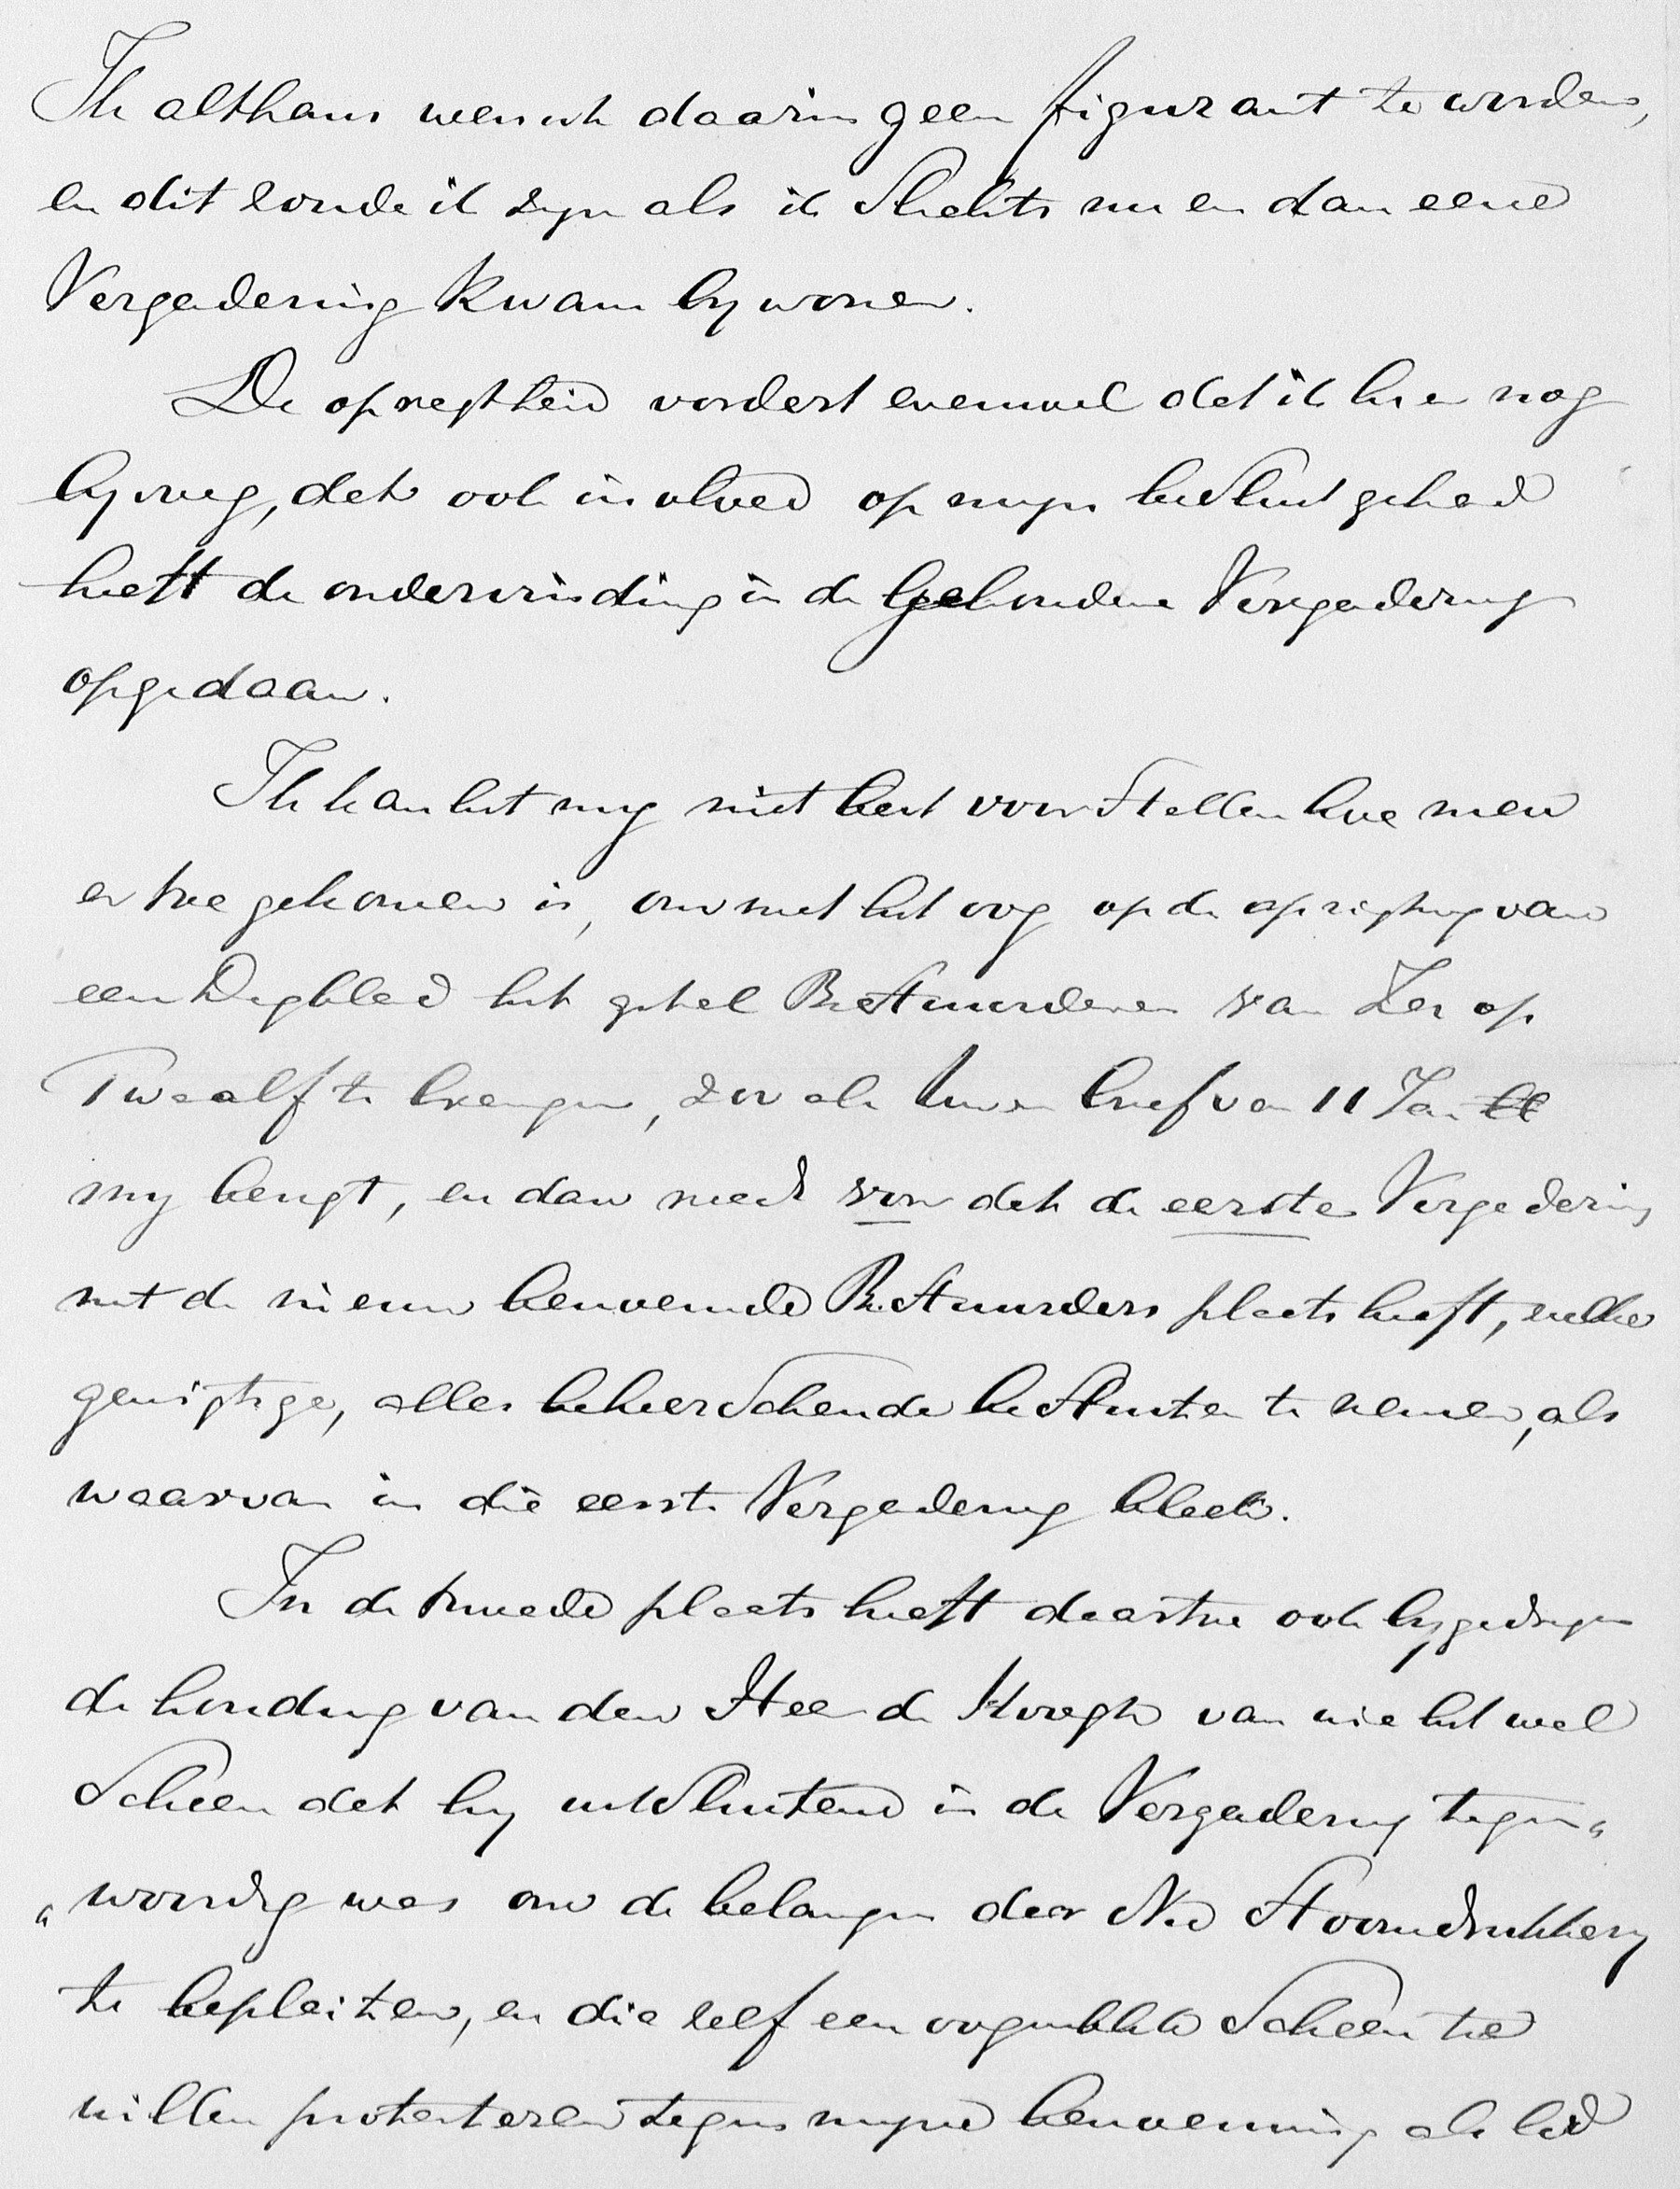 Ik althans wensch daarin geen figurant te worden,
en dit zoude ik zijn als ik slechts nu en dan eene
Vergadering kwam bywonen.
De opregtheid vordert evenwel dat ik hier nog
byvoeg, dat ook invloed op mijn besluit gehad
heeft de ondervinding in de gehoudene Vergadering
opgedaan.
Ik kan het my niet best voorstellen hoe men
er toe gekomen is, om met het oog op de oprigting van
een Dagblad het getal Bestuurderen van Zes op
Twaalf te brengen, zoo als Uwen brief van 11 Jan ll
my bengt, en dan meest voor dat de eerste Vergadering
met de nieuw benoemde Bestuurders plaats heeft, zulke
gewigtige, alles beheerschende besluiten te nemen, als
waarvan in die eerste Vergadering bleek.
In de tweede plaats heeft daartoe ook bygedragen
de houding van den Heer de Koogh van wie het wel
Scheen dat hy uitsluitend in de Vergadering tegen„
„woordig was om de belangen der Ned Stoomdrukkery
te bepleiten, en die zelf een oogenblik Scheen te
willen protesteren tegens mijne benoeming als lid